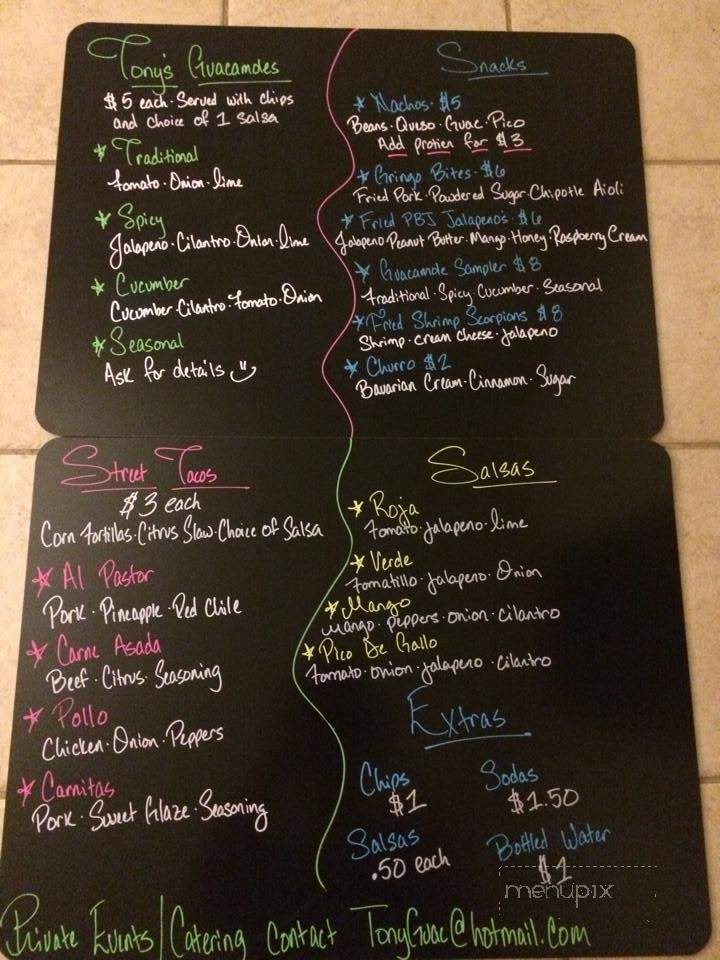 Tony's Guacamoles
$5 each · Served with chips
and choice of 1 salsa
Traditional
Tomato · Onion · lime
Spicy
Jalapeno · Cilantro · Onion · lime
Cucumber
Cucumber · Cilantro · Tomato · Onion
Seasonal
Ask for details
Snacks
Nachos · $5
Beans · Queso · Guac · Pico
Add protien for $3
Gringo Bites · $6
Fried Pork · Powdered Sugar · Chipotle Aioli
Fried PBJ Jalapenos · $6
Jalapeno Peanut Butter · Mango · Honey · Raspberry Cream
Guacamole Sampler $8
Traditional · Spicy · Cucumber · Seasonal
Fried Shrimp Scorpions $8
Shrimp · cream cheese · jalapeno
Churro $2
Bavarian Cream · Cinnamon · Sugar
Street Tacos
$3 each
Corn Tortillas · Citrus Slaw · Choice of Salsa
Al Pastor
Pork · Pineapple · Red Chile
Carne Asada
Beef · Citrus · Seasoning
Pollo
Chicken · Onion · Peppers
Carnitas
Pork · Sweet Glaze · Seasoning
Salsas
Roja
Tomato · jalapeno · lime
Verde
Tomatillo · Jalapeno · Onion
Mango
mango · peppers · onion · cilantro
Pico De Gallo
Tomato · onion · jalapeno · cilantro
Extras
Chips
$1
Sodas
$1.50
Salsas
.50 each
Bottled Water
$1
menupix
Private Events | Catering Contact TonyGuac@hotmail.com